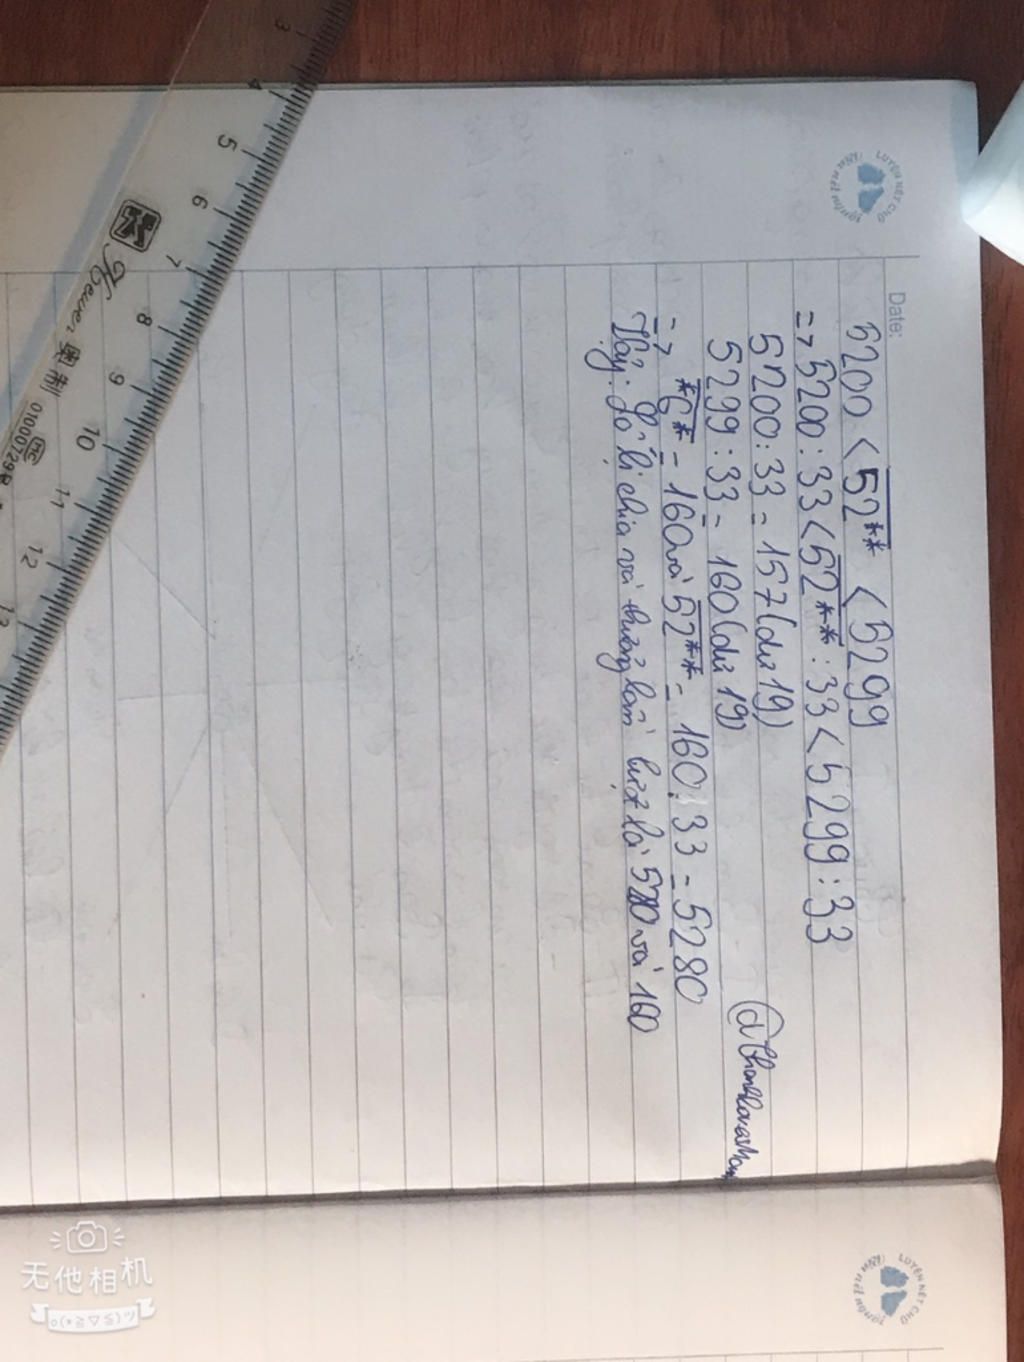 Date:
5200 < 52** < 5299
=> 5200 : 33 < 52** : 33 < 5299 : 33
5200 : 33 = 157 (dư 19)
5299 : 33 = 160 (dư 19)
=> *6* = 160 và 52** = 160 : 33 = 5280
Vậy: Số bị chia và thương lần lượt là 5280 và 160
LUYỆN NÉT CHỮ
LUYỆN NÉT CHỮ
3 4 5 6 7 8 9 10 11 12 13
Kewen 奥制
MC
无他相机